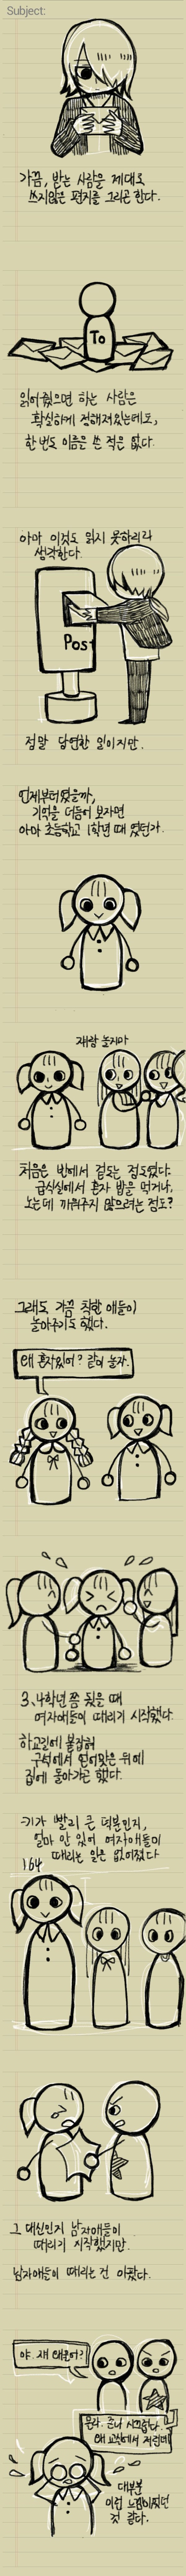 Subject:
가끔, 받는 사람을 제대로
쓰지않은 편지를 그리곤 한다.
To
읽어줬으면 하는 사람은
확실하게 정해져있는데도,
한번도 이름을 쓴 적은 없다.
아마 이것도 읽지 못하리라
생각한다.
Post
정말 당연한 일이지만.
언제부터였을까,
기억을 더듬어 보자면
아마 초등학교 1학년 때 였던가.
쟤랑 놀지마
처음은 반에서 겉도는 정도였다.
급식실에서 혼자 밥을 먹거나,
노는데 끼워주지 않으려는 정도?
그래도 가끔 착한 애들이
놀아주기도 했다.
왜 혼자있어? 같이 놀자.
3, 4학년 쯤 됐을 때
여자애들이 때리기 시작했다.
하교길에 붙잡혀
구석에서 얻어맞은 뒤에
집에 돌아가곤 했다.
키가 빨리 큰 덕분인지,
얼마 안 있어 여자애들이
때리는 일은 없어졌다
164
그 대신인지 남자애들이
때리기 시작했지만.
남자애들이 때리는 건 아팠다.
야. 쟤 왜울어?
몰라. 존나 시끄럽다.
왜 교실에서 저런데
대부분
이런 느낌이었던
것 같다.